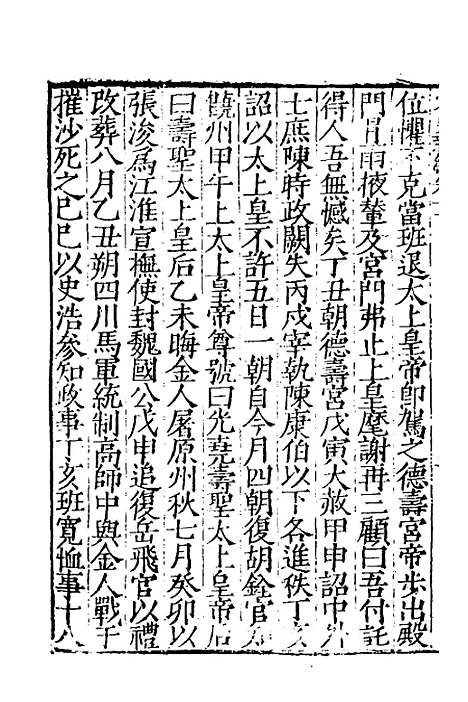 位懼不克當班退太上皇帝即駕之德壽宮帝步出殿
門冒雨掖輦及宮門弗止上皇麾謝再三顧曰吾付託
得人吾無憾矣丁丑朝德壽宮戊寅大赦甲申詔中外
士庶陳時政闕失丙戌宰執陳康伯以下各進秩丁亥
詔以太上皇不許五日一朝自今月四朝復胡銓官知
饒州甲午上太上皇帝尊號曰光堯壽聖太上皇帝后
曰壽聖太上皇后乙未晦金人屠原州秋七月癸卯以
張浚爲江淮宣撫使封魏國公戊申追復岳飛官以禮
改葬八月乙丑朔四川馬軍統制高師中與金人戰于
摧沙死之巳巳以史浩參知政事丁亥班寬恤事十八